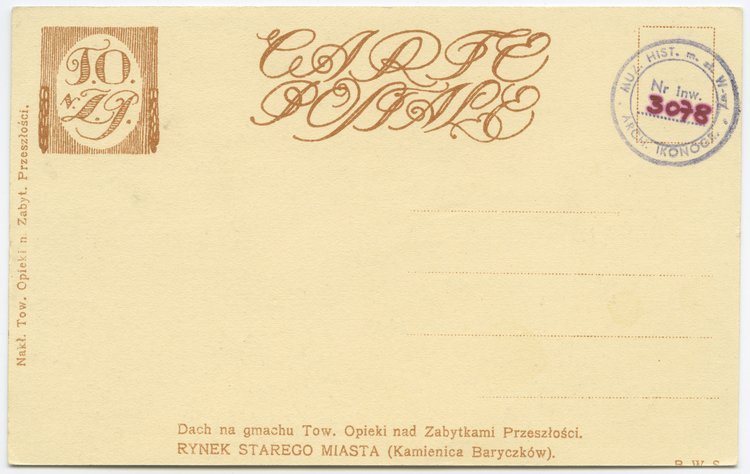 T.O.
n.Z.P.
CARTE
POSTALE
MUZ. HIST. m. st. W-wy
Nr inw.
3078
ARCH. IKONOGR.
Nakł. Tow. Opieki n. Zabyt. Przeszłości.
Dach na gmachu Tow. Opieki nad Zabytkami Przeszłości.
RYNEK STAREGO MIASTA (Kamienica Baryczków).
B. W. S.